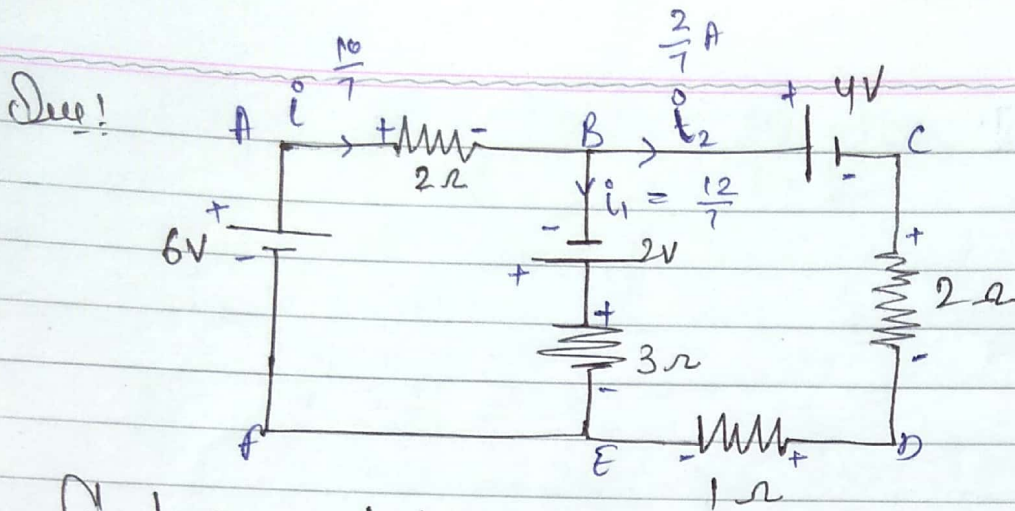 Que!
10/7
2/7 A
A
i
+
-
2Ω
B
i₂
+
4V
-
C
i₁ = 12/7
+
6V
-
-
2V
+
+
3Ω
-
+
2Ω
-
F
E
-
+
1Ω
D